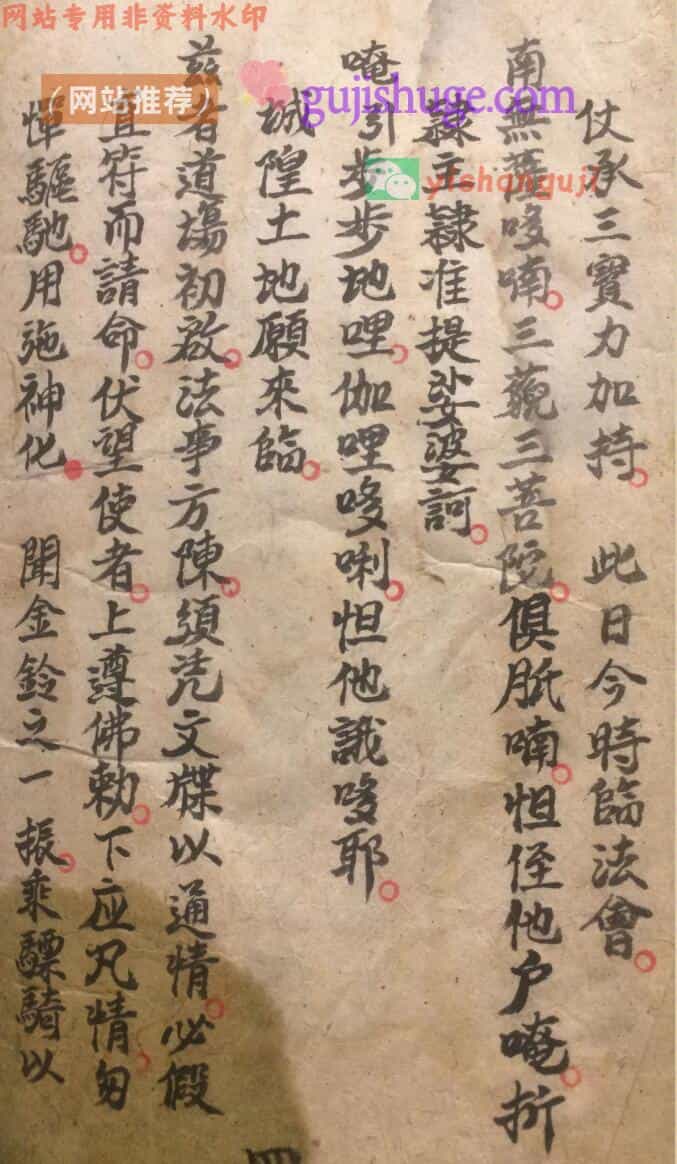 网站专用非资料水印
（网站推荐）
gujishuge.com
yishanguji
仗承三寳力加持。此日今時臨法會。
南無薩哆喃。三藐三菩陀。俱胝喃。怛侄他戶唵。折
隸主隸准提娑婆訶。
唵引步步地哩。伽哩哆唎。怛他誐哆耶。
城隍土地願來臨。
茲者道塲初啟。法事方陳。須凴文牒以通情。必假
直符而請命。伏望使者。上遵佛勅。下应凡情。勿
惮驅馳。用施神化。聞金鈴之一振。乘驃騎以
四